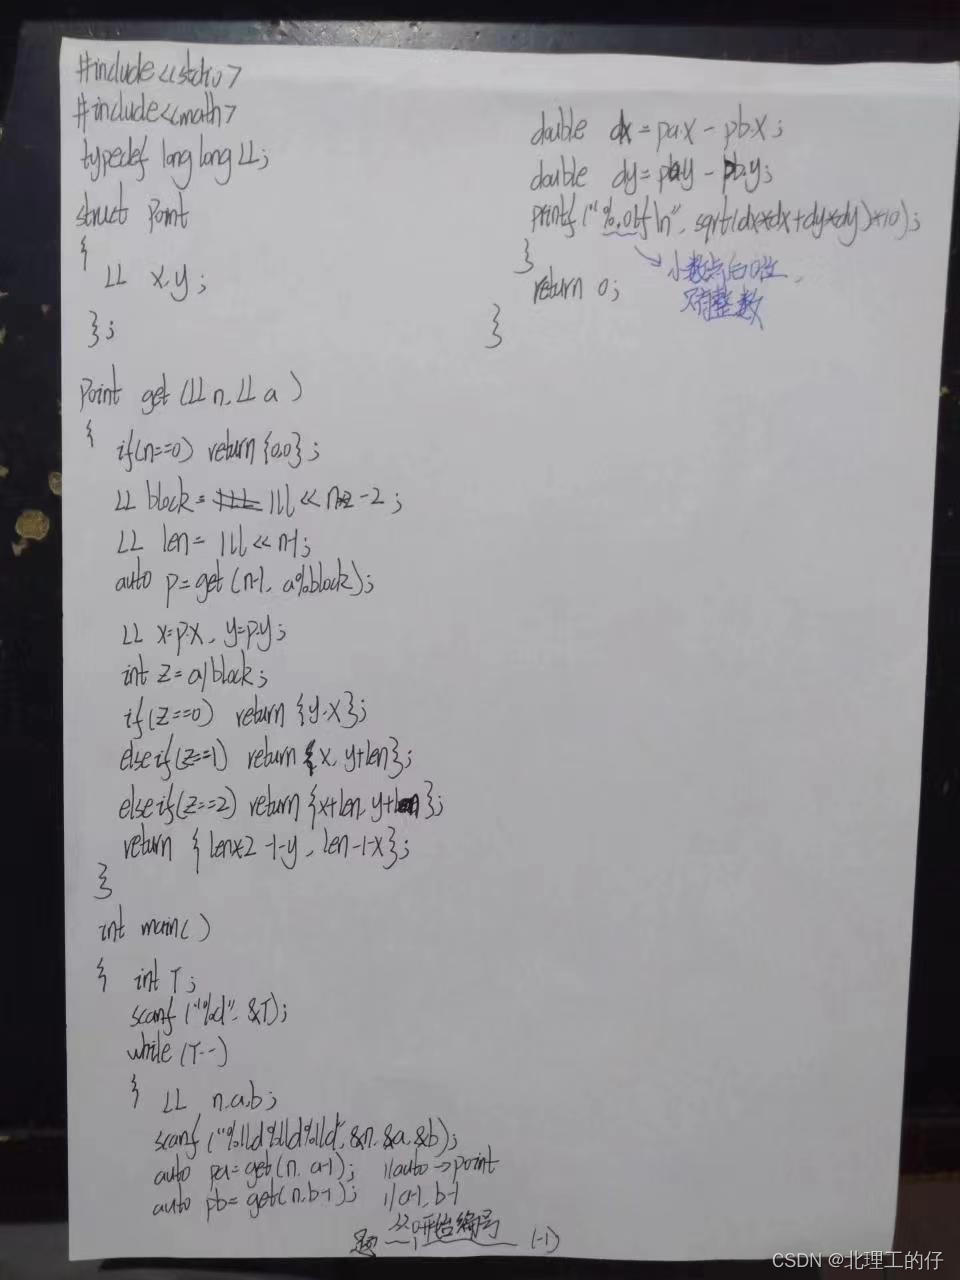 #include<cstdio>
#include<cmath>
typedef long long LL;
struct Point
{
LL x,y;
};
Point get (LL n, LL a)
{
if(n==0) return {0,0};
LL block= 1ll << n*2-2;
LL len= 1ll << n-1;
auto p=get(n-1, a%block);
LL x=p.x, y=p.y;
int z=a/block;
if(z==0) return {y,x};
else if(z==1) return {x, y+len};
else if(z==2) return {x+len, y+len};
return {len*2-1-y, len-1-x};
}
int main()
{ int T;
scanf("%d", &T);
while(T--)
{ LL n,a,b;
scanf("%lld%lld%lld", &n, &a, &b);
auto pa=get(n, a-1); //auto→point
auto pb=get(n, b-1); //a-1, b-1
题 以0开始编号 (-1)
1
double dx=pa.x-pb.x;
double dy=pa.y-pb.y;
printf("%.0lf\n", sqrt(dx*dx+dy*dy)*10);
} →小数点后0位
return 0; 只有整数
}
CSDN @北理工的仔